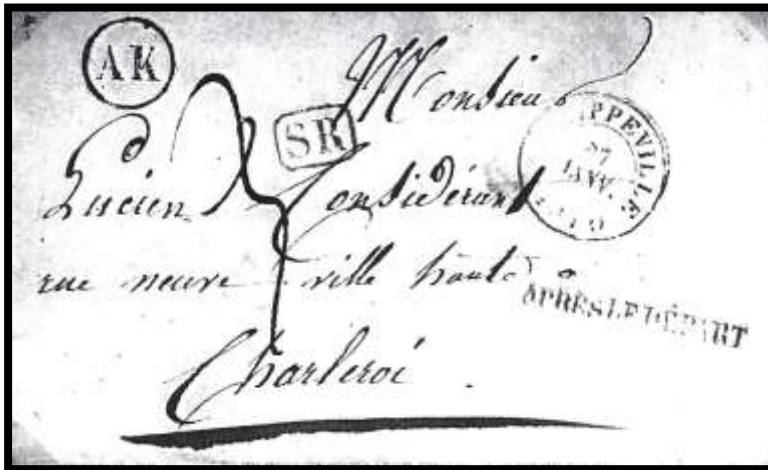 AK
Monsieur
SR
Lucien Considérant
rue neuve ville haute
Charleroi
PPEVILLE
27
JANV.
APRES LE DÉPART